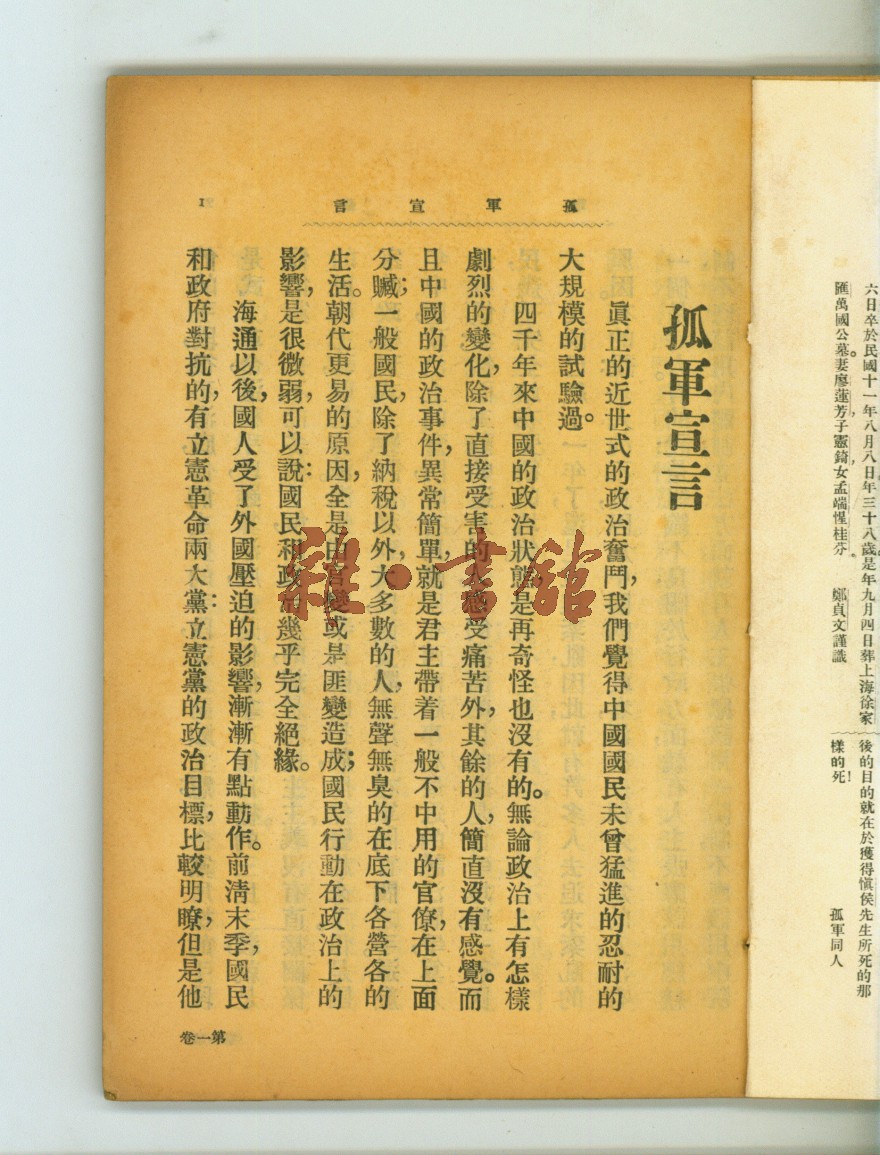 六日卒於民國十一年八月八日年三十八歲。是年九月四日葬上海徐家
匯萬國公墓。妻廖蓮芳,子憲錡,女孟端惺桂芬　鄭貞文謹識
後的目的就在於獲得愼侯先生所死的那
樣的死!　孤軍同人
孤軍宣言
1
孤軍宣言
眞正的近世式的政治奮鬥,我們覺得中國國民未曾猛進的忍耐的
大規模的試驗過。
四千年來中國的政治狀態,是再奇怪也沒有的。無論政治上有怎樣
劇烈的變化,除了直接受害的人感受痛苦外,其餘的人,簡直沒有感覺。而
且中國的政治事件,異常簡單,就是君主帶着一般不中用的官僚,在上面
分贓;一般國民,除了納稅以外,大多數的人,無聲無臭的在底下各營各的
生活。朝代更易的原因,全是由官變或是匪變造成;國民行動在政治上的
影響,是很微弱,可以說:國民和政府幾乎完全絕緣。
海通以後,國人受了外國壓迫的影響,漸漸有點動作。前淸末季,國民
和政府對抗的,有立憲革命兩大黨:立憲黨的政治目標,比較明瞭,但是他
第一卷
雜·書舘